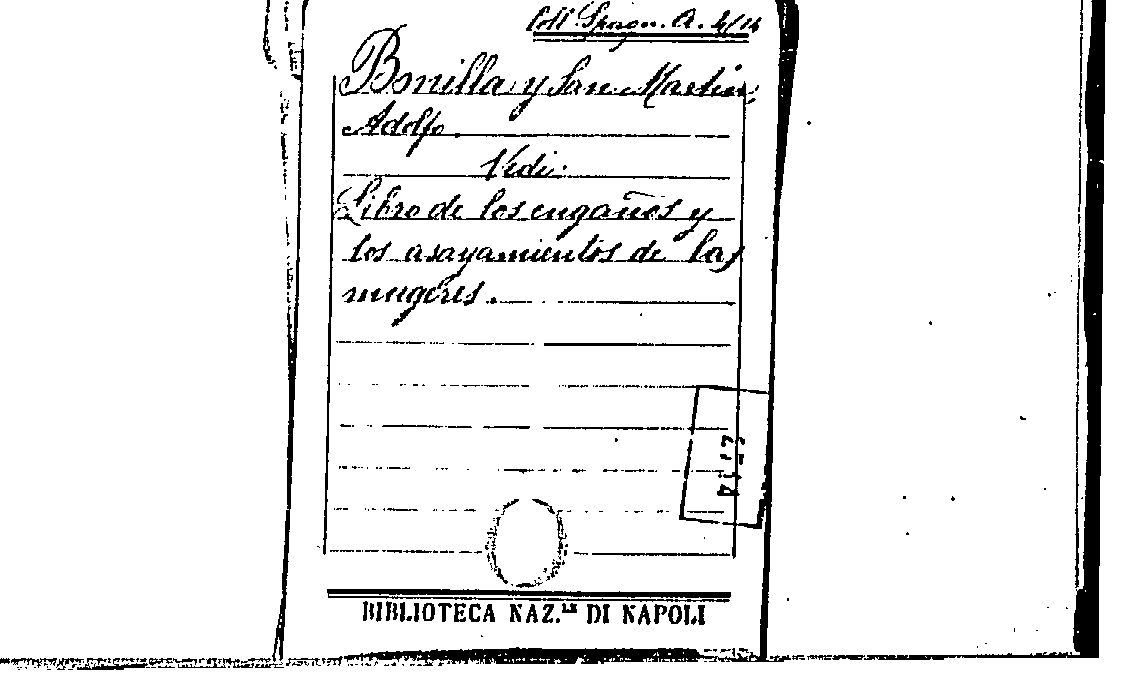 Coll. Spagn. A. 4/14
Bonilla y San Martin,
Adolfo.
Vedi:
Libro de los engaños y
los asayamientos de las
mugeres.
BIBLIOTECA NAZ.LE DI NAPOLI